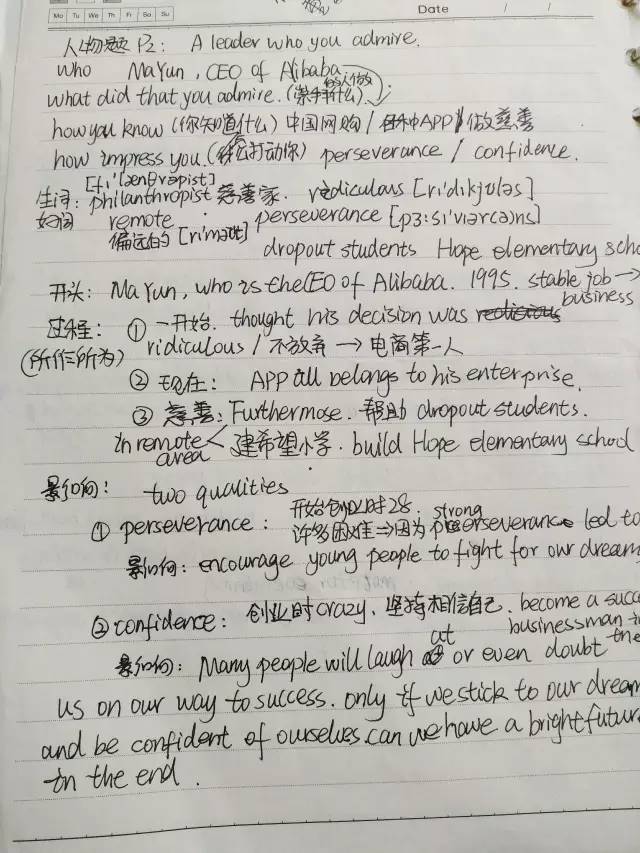 Mo Tu We Th Fr Sa Su
Date / /
人物题 P2: A leader who you admire.
who Ma Yun, CEO of Alibaba
what did that you admire. (崇拜什么)
how you know (你知道什么) 中国网购 / 各种APP / 做慈善
how impress you. (怎么打动你) perseverance / confidence.
生词: philanthropist 慈善家. rediculous [ri'dikjʊləs]
好词 remote perseverance
偏远的 dropout students Hope elementary scho
开头: Ma Yun, who is the CEO of Alibaba. 1995. stable job →
business
过程: ① 一开始. thought his decision was
(所作所为) ridiculous / 不放弃 → 电商第一人
② 现在: APP all belongs to his enterprise.
③ 慈善: Furthermose. 帮助 dropout students.
in remote area < 建希望小学. build Hope elementary school
影响: two qualities
开始创业时28. strong
① perseverance: 许多困难 ⇒ 因为 perseverance led to
影响: encourage young people to fight for our dream
② confidence: 创业时 crazy. 坚持相信自己. become a succe
businessman in
影响: Many people will laugh at or even doubt the
us on our way to success. only if we stick to our dream
and be confident of ourselves. can we have a bright futur
in the end.